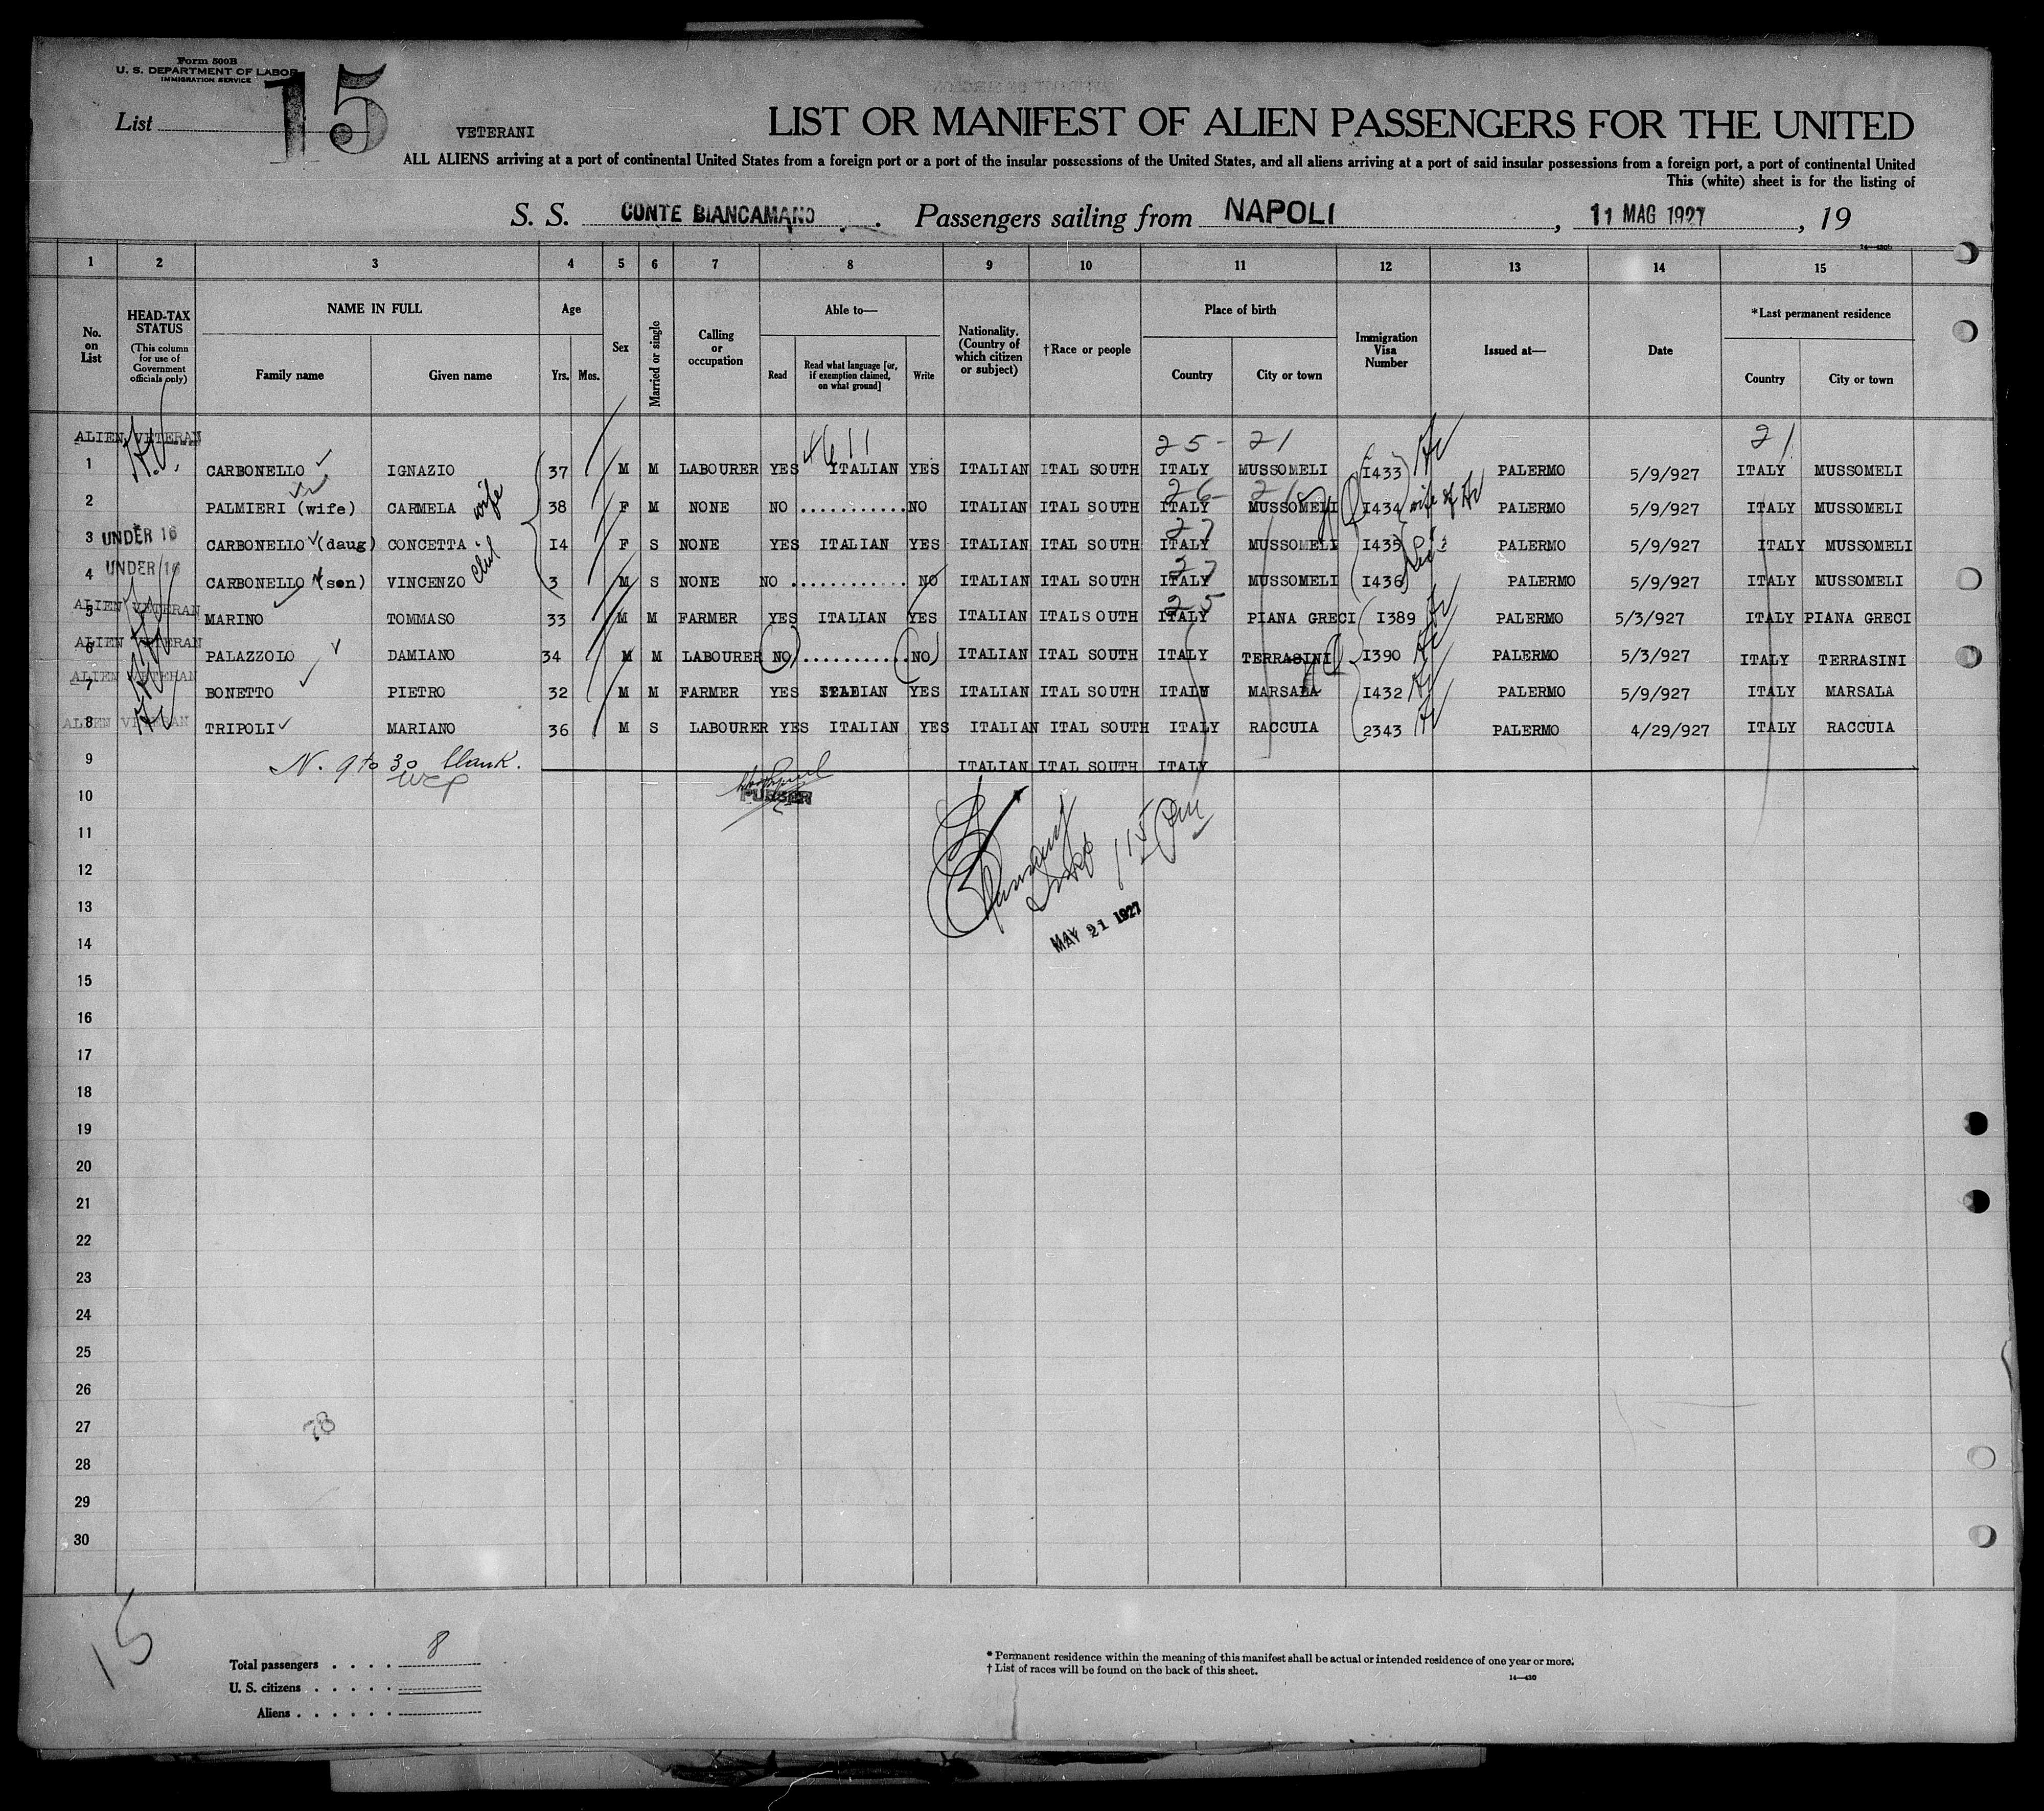 Form 500B
U. S. DEPARTMENT OF LABOR
IMMIGRATION SERVICE
List 15
VETERANI
LIST OR MANIFEST OF ALIEN PASSENGERS FOR THE UNITED
ALL ALIENS arriving at a port of continental United States from a foreign port or a port of the insular possessions of the United States, and all aliens arriving at a port of said insular possessions from a foreign port, a port of continental United
This (white) sheet is for the listing of
S. S. CONTE BIANCAMANO. Passengers sailing from NAPOLI, 11 MAG 1927, 19
1 2 3 4 5 6 7 8 9 10 11 12 13 14 15
No. on List
HEAD-TAX STATUS
(This column for use of Government officials only)
NAME IN FULL
Family name Given name
Age
Yrs. Mos.
Sex
Married or single
Calling or occupation
Able to—
Read Read what language [or, if exemption claimed, on what ground] Write
Nationality. (Country of which citizen or subject)
†Race or people
Place of birth
Country City or town
Immigration Visa Number
Issued at—
Date
*Last permanent residence
Country City or town
ALIEN VETERAN 4611 25- 21 21
1 CARBONELLO IGNAZIO 37 M M LABOURER YES ITALIAN YES ITALIAN ITAL SOUTH ITALY MUSSOMELI I433 PALERMO 5/9/927 ITALY MUSSOMELI
2 PALMIERI (wife) CARMELA wife 38 F M NONE NO ........... NO ITALIAN ITAL SOUTH ITALY MUSSOMELI I434 wife of PALERMO 5/9/927 ITALY MUSSOMELI
3 UNDER 16 CARBONELLO (daug) CONCETTA I4 F S NONE YES ITALIAN YES ITALIAN ITAL SOUTH ITALY MUSSOMELI I435 PALERMO 5/9/927 ITALY MUSSOMELI
4 UNDER 16 CARBONELLO (son) VINCENZO 3 M S NONE NO ............ NO ITALIAN ITAL SOUTH ITALY MUSSOMELI I436 PALERMO 5/9/927 ITALY MUSSOMELI
5 ALIEN VETERAN MARINO TOMMASO 33 M M FARMER YES ITALIAN YES ITALIAN ITAL SOUTH ITALY PIANA GRECI I389 PALERMO 5/3/927 ITALY PIANA GRECI
6 ALIEN VETERAN PALAZZOLO DAMIANO 34 M M LABOURER NO ........... NO ITALIAN ITAL SOUTH ITALY TERRASINI I390 PALERMO 5/3/927 ITALY TERRASINI
7 ALIEN VETERAN BONETTO PIETRO 32 M M FARMER YES ITALIAN YES ITALIAN ITAL SOUTH ITALY MARSALA I432 PALERMO 5/9/927 ITALY MARSALA
8 ALIEN VETERAN TRIPOLI MARIANO 36 M S LABOURER YES ITALIAN YES ITALIAN ITAL SOUTH ITALY RACCUIA 2343 PALERMO 4/29/927 ITALY RACCUIA
9 N. 9 to 30 blank. ITALIAN ITAL SOUTH ITALY
10 PURSER
11
12
13
MAY 21 1927
14
15
16
17
18
19
20
21
22
23
24
25
26
27
28
29
30
15
Total passengers . . . . 8
U. S. citizens . . . . .
Aliens . . . . . .
* Permanent residence within the meaning of this manifest shall be actual or intended residence of one year or more.
† List of races will be found on the back of this sheet.
14—430